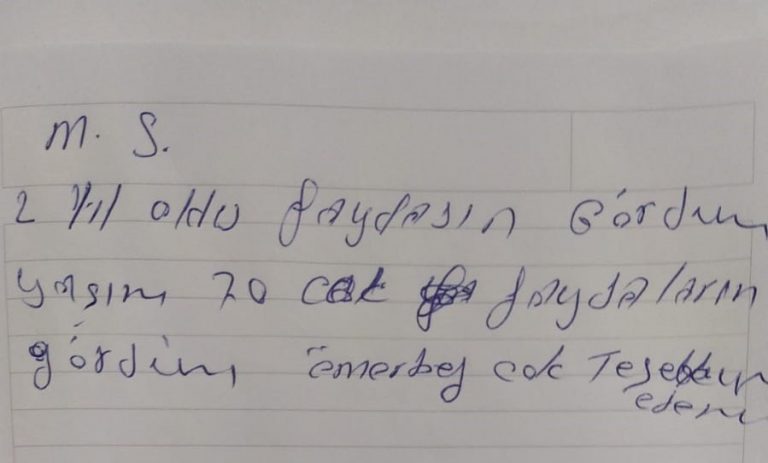 M. S.
2 Yıl oldu faydasın Gördüm
yaşım 70 cok faydaların
gördüm ömerbey cok Teşekkur
ederim